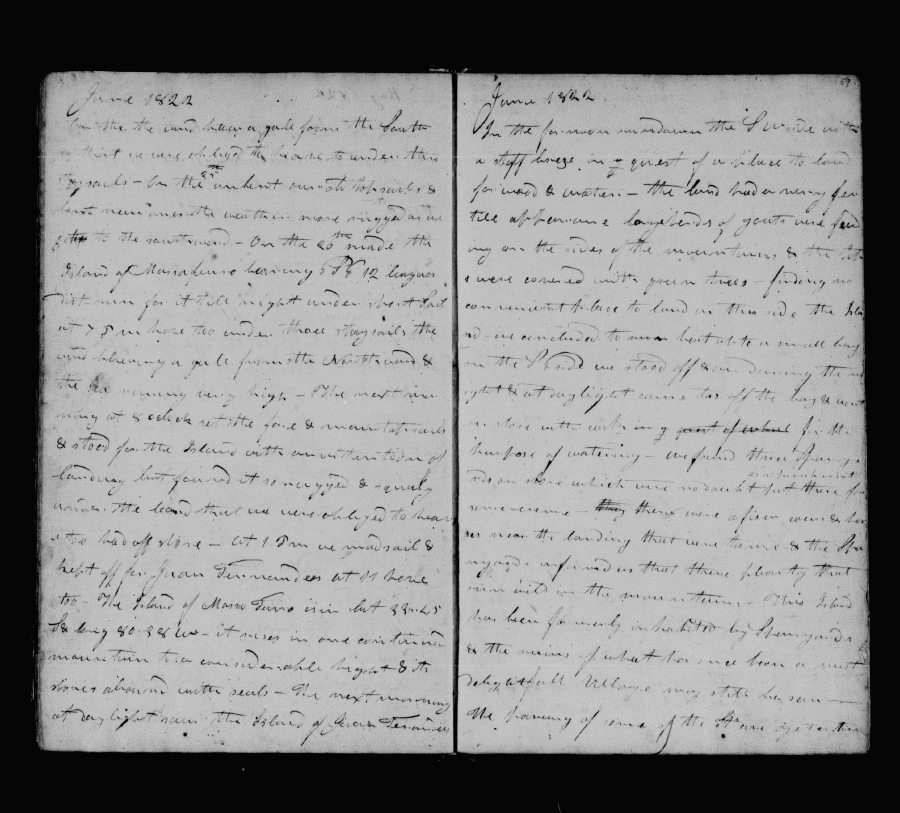 June 1822
On the the wind blew a gale from the South
so that we were obliged to heave to under three
topsails - On the 25th unbent our old topsails &
bent new ones the weather more rugged as we
got to the southward - On the 26th made the
Island of Massafuero bearing 12 leagues
dist run for it till night under short sail
at 7 P m hove too under three staysails the
wind blowing a gale from the Northward &
the sea running very high - The next mor
ning at 8 oclock set the fore & main topsails
& stood for the Island with an intention of
landing but found it so rugged & squaly
under the land that we were obliged to heav
e too had off shore - at 1 P m we mad sail &
kept off for Juan Fernandees at 11 hove
too - The Island of Massa Fuero is in lat 33-45
S & long 80-38 W - it rises in one continued
mountain to a considerable hight & its
shores abound with seals - The next morning
at day light saw the Island of Juan Fernandees
59
June 1822
In the forenoon ran down the S W side with
a stiff breeze in quest of a place to land
for wood & water - the land had a very fer
tile appearance large herds of goats were feed
ing on the sides of the mountains & the
s were covered with green trees - finding no
convenient place to land on this side the Isla
nd - we concluded to run beat up to a small bay
on the S E side we stood off & on during the ni
ght & at daylight came too off the bay & went
on shore with casks in quest of what for the
purpose of watering - we found three Spany
rds on shore which were no doubt put there for
as a punishment
some crime - they there were a few cows & hor
ses near the landing that were tame & the Spa
nyards informed us that there plenty that
run wild on the mountains - This Island
has been formerly inhabited by Spanyards
& the ruins of what has once been a most
delightfull Village may still be seen -
the paveing of some of the Streets are yet entire